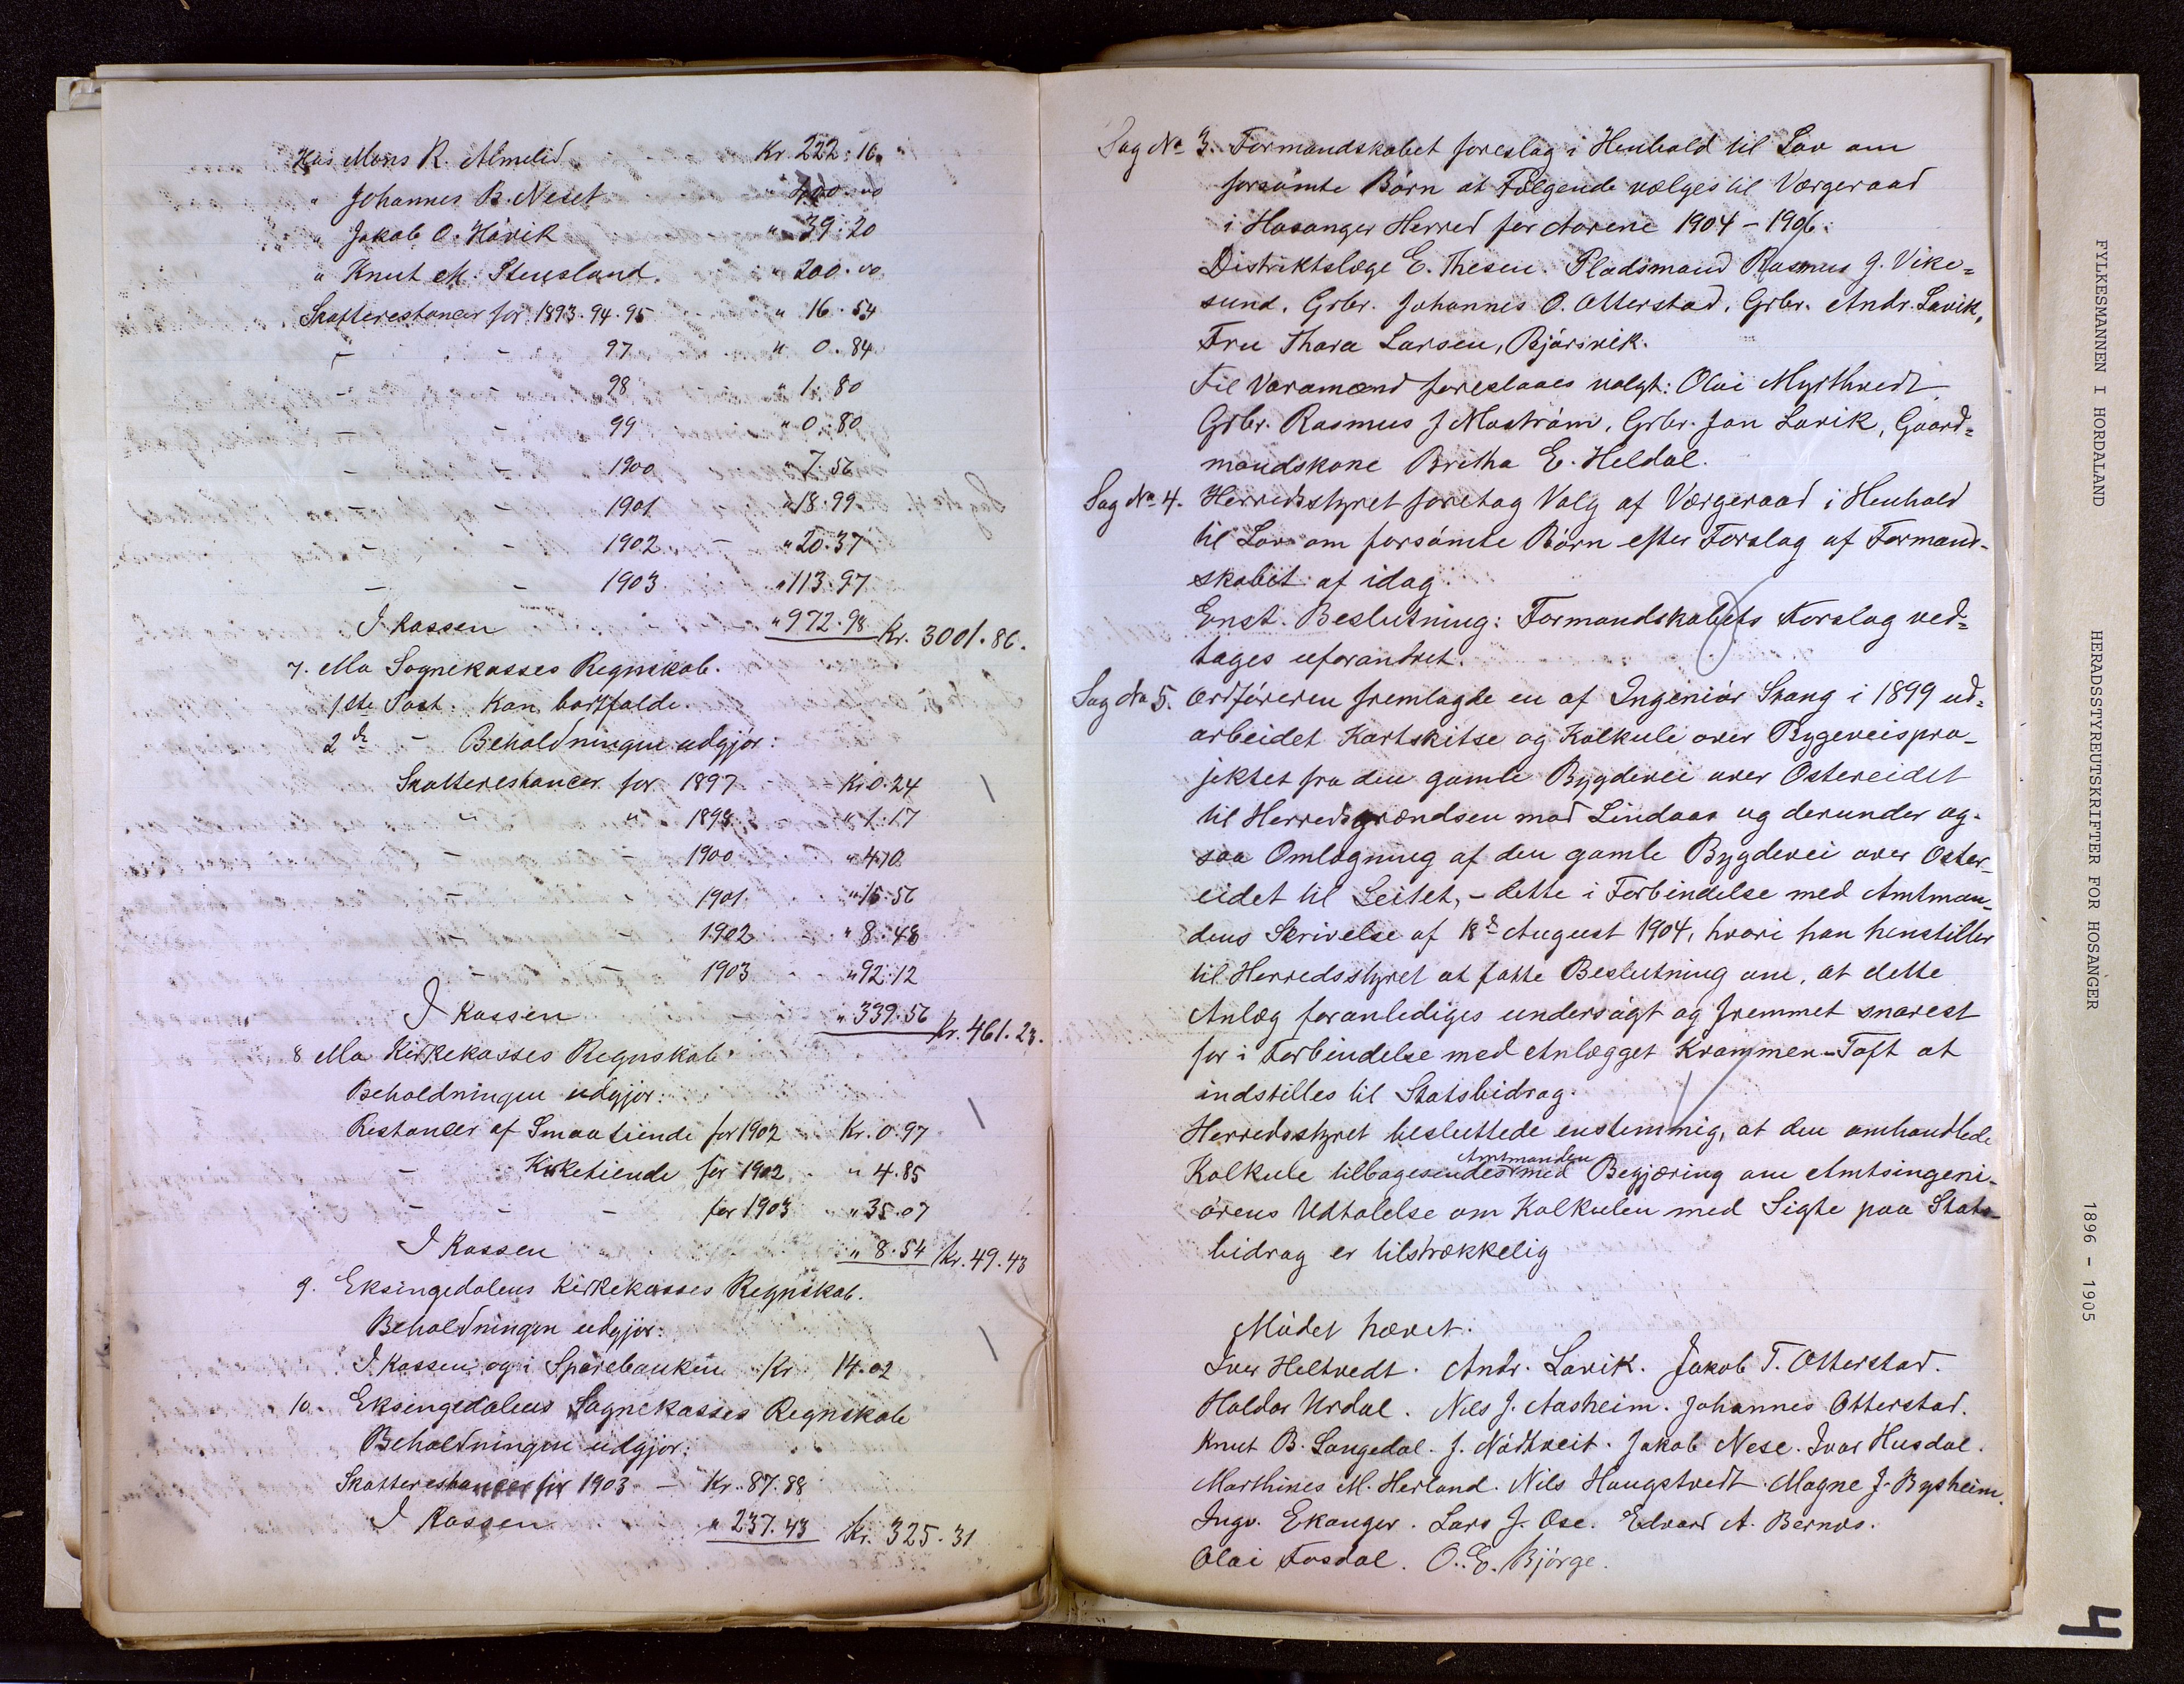 Hos Mons R. Almelid Kr. 222.16
" Johannes B. Neset " 400.00
" Jakob O. Hövik " 39.20
" Knut M. Stensland. " 200.00
Skatterestancer for 1893.94.95 " 16.54
- - 97 " 0.84
- - 98 " 1.80
- - 99 " 0.80
- - 1900 " 7.56
- - 1901 " 18.99
- - 1902 - " 20.37
- - 1903 " 113.97
I Kassen " 972.98 Kr. 3001.86.
7. Mo Sognekasses Regnskab.
1ste Post. Kan bortfalde.
2den - Beholdningen udgjør:
Skatterestancer for 1897 - Kr 0.24
" " 1898 " 1.17
- - 1900 " 4.10
- - 1901 " 15.56
- - 1902 " 8.48
- - 1903 " 92.12
I Kassen " 339.56 Kr. 461.23.
8 Mo Kirkekasses Regnskab.
Beholdningen udgjør:
Restancer af Smaatiende for 1902 Kr. 0.97
- Kirketiende for 1902 " 4.85
- - - for 1903 " 35.07
I Kassen " 8.54 Kr. 49.43
9. Eksingedalens Kirkekasses Regnskab.
Beholdningen udgjør:
I Kassen og i Sparebanken Kr 14.02
10. Eksingedalens Sognekasses Regnskab
Beholdningen udgjør:
Skatterestancer for 1903 - Kr. 87.88
I Kassen " 237.43 Kr. 325.31
Sag No 3. Formandskabet foreslog i Henhold til Lov om
forsömte Børn at Følgende vælges til Værgeraad
i Hosanger Herred for Aarene 1904 - 1906:
Distriktslæge E. Thesen. Pladsmand Rasmus J. Vike=
sund, Grbr. Johannes O. Otterstad, Grbr. Andr. Lavik,
Fru Thora Larsen, Bjørsvik.
Til Varamænd foreslaaes valgt: Olai Myrthvedt
Grbr. Rasmus J Mostrøm, Grbr. Jan Lavik, Gaard=
mandskone Britha E. Heldal.
Sag No 4. Herredsstyret foretog Valg af Værgeraad i Henhold
til Lov om forsömte Børn efter Forslag af Formand-
skabet af idag.
Enst. Beslutning: Formandskabets Forslag ved=
tages uforandret.
Sag No 5. Ordföreren fremlagde en af Ingeniör Skang i 1899 ud=
arbeidet Kartskitse og Kalkule over Bygeveispro-
jektet fra den gamle Bygdevei over Ostereidet
til Herredsgrændsen mod Lindaas og derunder og-
saa Omlægning af den gamle Bygdevei over Oster-
eidet til Leitet, - dette i Forbindelse med Amtman-
dens Skrivelse af 18de August 1904, hvori han henstiller
til Herredsstyret at fatte Beslutning om, at dette
Anlæg foranlediges undersögt og fremmet snarest
for i Forbindelse med Anlægget Krammer-Toft at
indstilles til Statsbidrag.
Herredsstyret besluttede enstemmig, at den omhandlede
Amtmanden
Kalkule tilbagesendes med Begjæring om Amtsingeni-
ørens Udtalelse om Kalkulen med Sigte paa Stats-
bidrag er tilstrækkelig
Mödet hævet.
Iver Heltvedt. Andr. Lavik. Jakob T. Otterstad.
Haldor Urdal. Nils J. Aasheim. Johannes Otterstad.
Knut B. Langedal. J. Nödtveit. Jakob Nese. Ivar Husdal.
Marthines M. Herland. Nils Haugstvedt. Magne J. Bysheim.
Ingv. Ekanger. Lars J. Ose. Edvard A. Bernes.
Olai Fosdal. O. E. Bjørge.
FYLKESMANNEN I HORDALAND HERADSSTYREUTSKRIFTER FOR HOSANGER 1896 - 1905
4